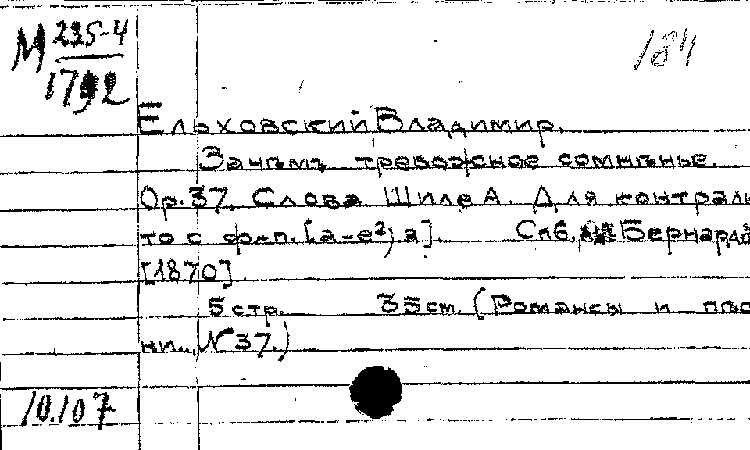 М 235-4
1792
184
Ельховский Владимир.
Зачѣмъ тревожное сомнѣнье.
Ор.37. Слова Шиле А. Для контраль-
то с ф-п. [a-e²; a]. Спб., Бернард
[1870]
5 стр. 35 см. (Романсы и пѣс-
ни... № 37.)
10.107